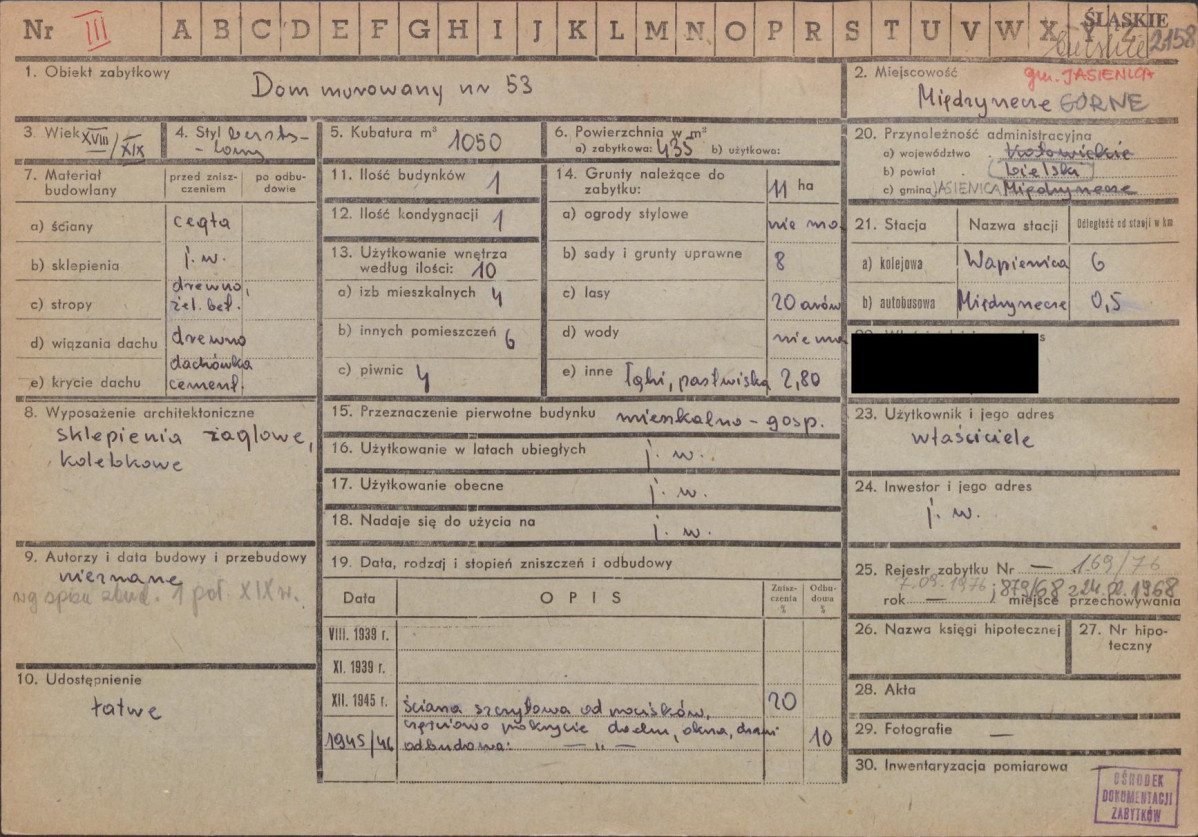 Nr III A B C D E F G H I J K L M N O P R S T U V W X Y Z
ŚLĄSKIE
2158
1. Obiekt zabytkowy
Dom murowany nr 53
2. Miejscowość
gm. JASIENICA
Międzyrzecze GÓRNE
3. Wiek XVIII/XIX
4. Styl bezsty-
-lowy
5. Kubatura m³ 1050
6. Powierzchnia w m²
a) zabytkowa: 435 b) użytkowa:
7. Materiał budowlany
przed znisz-
czeniem
po odbu-
dowie
a) ściany cegła
b) sklepienia j. w.
c) stropy drewno, żel. bet.
d) wiązania dachu drewno
e) krycie dachu dachówka cement.
8. Wyposażenie architektoniczne
sklepienia żaglowe,
kolebkowe
9. Autorzy i data budowy i przebudowy
nieznane
wg spisu zbud. 1 poł. XIX w.
10. Udostępnienie
łatwe
11. Ilość budynków 1
12. Ilość kondygnacji 1
13. Użytkowanie wnętrza
według ilości: 10
a) izb mieszkalnych 4
b) innych pomieszczeń 6
c) piwnic 4
14. Grunty należące do
zabytku: 11 ha
a) ogrody stylowe nie ma
b) sady i grunty uprawne 8
c) lasy 20 arów
d) wody nie ma
e) inne łąki, pastwiska 2,80
15. Przeznaczenie pierwotne budynku mieszkalno - gosp.
16. Użytkowanie w latach ubiegłych j. w.
17. Użytkowanie obecne j. w.
18. Nadaje się do użycia na j. w.
19. Data, rodzaj i stopień zniszczeń i odbudowy
Data OPIS Znisz-
czenia
% Odbu-
dowa
%
VIII. 1939 r.
XI. 1939 r.
XII. 1945 r. ściana szczytowa od pocisków, 20
częściowo pokrycie dachu, okna, drzwi
1945/46 odbudowa: — „ — 10
20. Przynależność administracyjna
a) województwo Katowickie
b) powiat bielski
c) gmina JASIENICA Międzyrzecze
21. Stacja Nazwa stacji Odległość od stacji w km
a) kolejowa Wapienica 6
b) autobusowa Międzyrzecze 0,5
23. Użytkownik i jego adres
właściciele
24. Inwestor i jego adres
j. w.
25. Rejestr zabytku Nr — 169/76
7.09.1976; 879/68 z 1968
rok — miejsce przechowywania
26. Nazwa księgi hipotecznej
27. Nr hipo-
teczny
28. Akta
29. Fotografie —
30. Inwentaryzacja pomiarowa
OŚRODEK
DOKUMENTACJI
ZABYTKÓW